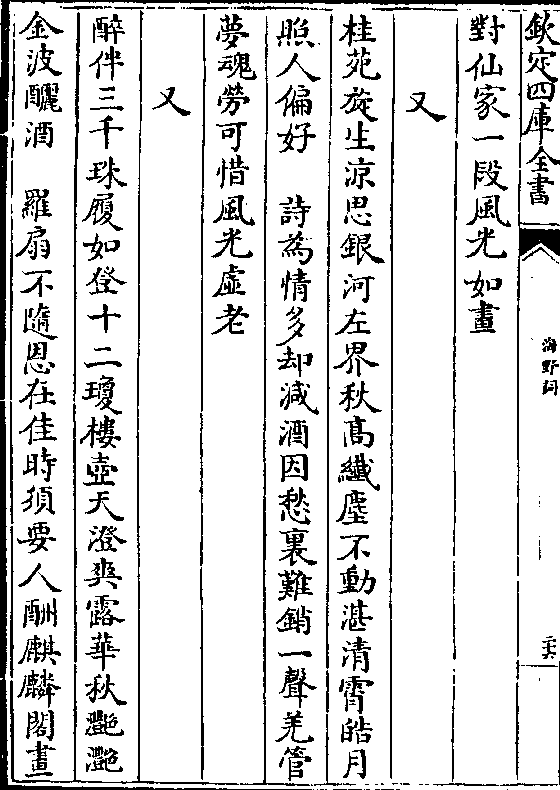 欽定四庫全書
海野詞
二十六
對仙家一段風光如畫
又
桂苑旋生涼思銀河左界秋髙纎塵不動湛清霄皓月
照人偏好　詩為情多却減酒因愁裏難銷一聲羌管
夢魂勞可惜風光虛老
又
醉伴三千珠履如登十二瓊樓壺天澄爽露華秋灔灔
金波釃酒　羅扇不隨恩在佳時須要人酬麒麟閣畫